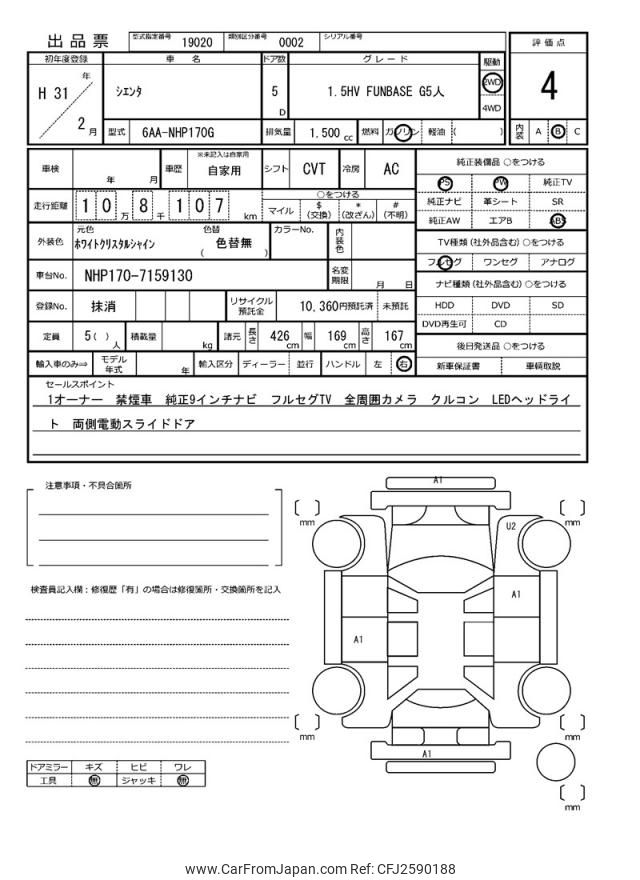 出品票 型式指定番号 19020 類別区分番号 0002 シリアル番号
評価点
4
初年度登録 車名 ドア数 グレード 駆動
H 31 年 2 月 シエンタ 5 D 1.5HV FUNBASE G5人 2WD 4WD
型式 6AA-NHP170G 排気量 1.500 cc 燃料 ガソリン 軽油 ( )
内装 A B C
車検 年 月 車歴 ※未記入は自家用 自家用 シフト CVT 冷房 AC
走行距離 1 0 万 8 千 1 0 7 km ○をつける
マイル $ (交換) * (改ざん) # (不明)
外装色 元色 ホワイトクリスタルシャイン 色替 ( 色替無 ) カラーNo. 内装色
車台No. NHP170-7159130 名変期限 月 日
登録No. 抹消 リサイクル預託金 10,360円預託済 未預託
定員 5( ) 人 積載量 kg 諸元 長さ 426 cm 幅 169 cm 高さ 167 cm
輸入車のみ⇒ モデル年式 年 輸入区分 ディーラー 並行 ハンドル 左 右
純正装備品 ○をつける
PS PW 純正TV
純正ナビ 革シート SR
純正AW エアB ABS
TV種類 (社外品含む) ○をつける
フルセグ ワンセグ アナログ
ナビ種類 (社外品含む) ○をつける
HDD DVD SD
DVD再生可 CD
後日発送品 ○をつける
新車保証書 車輌取説
セールスポイント
1オーナー 禁煙車 純正9インチナビ フルセグTV 全周囲カメラ クルコン LEDヘッドライ
ト 両側電動スライドドア
注意事項・不具合箇所
検査員記入欄：修復歴「有」の場合は修復箇所・交換箇所を記入
ドアミラー キズ ヒビ ワレ
工具 無 ジャッキ 無
A1
mm mm
U2
A1
A1
mm mm
A1
mm
www.CarFromJapan.com Ref: CFJ2590188